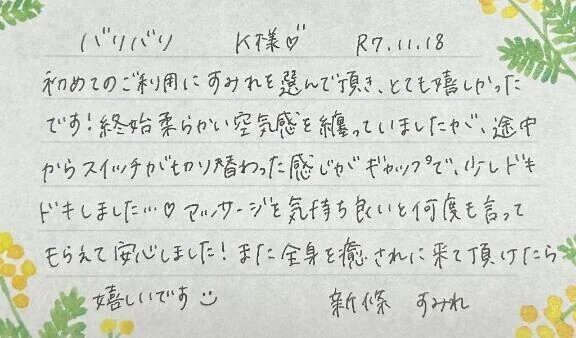 バリバリ K様♡ R7.11.18
初めてのご利用にすみれを選んで頂き、とても嬉しかった
です!終始柔らかい空気感を纏っていましたが、途中
からスイッチが切り替わった感じがギャップで、少しドキ
ドキしました…♡マッサージを気持ち良いと何度も言って
もらえて安心しました!また全身を癒されに来て頂けたら
嬉しいです☺ 新條 すみれ